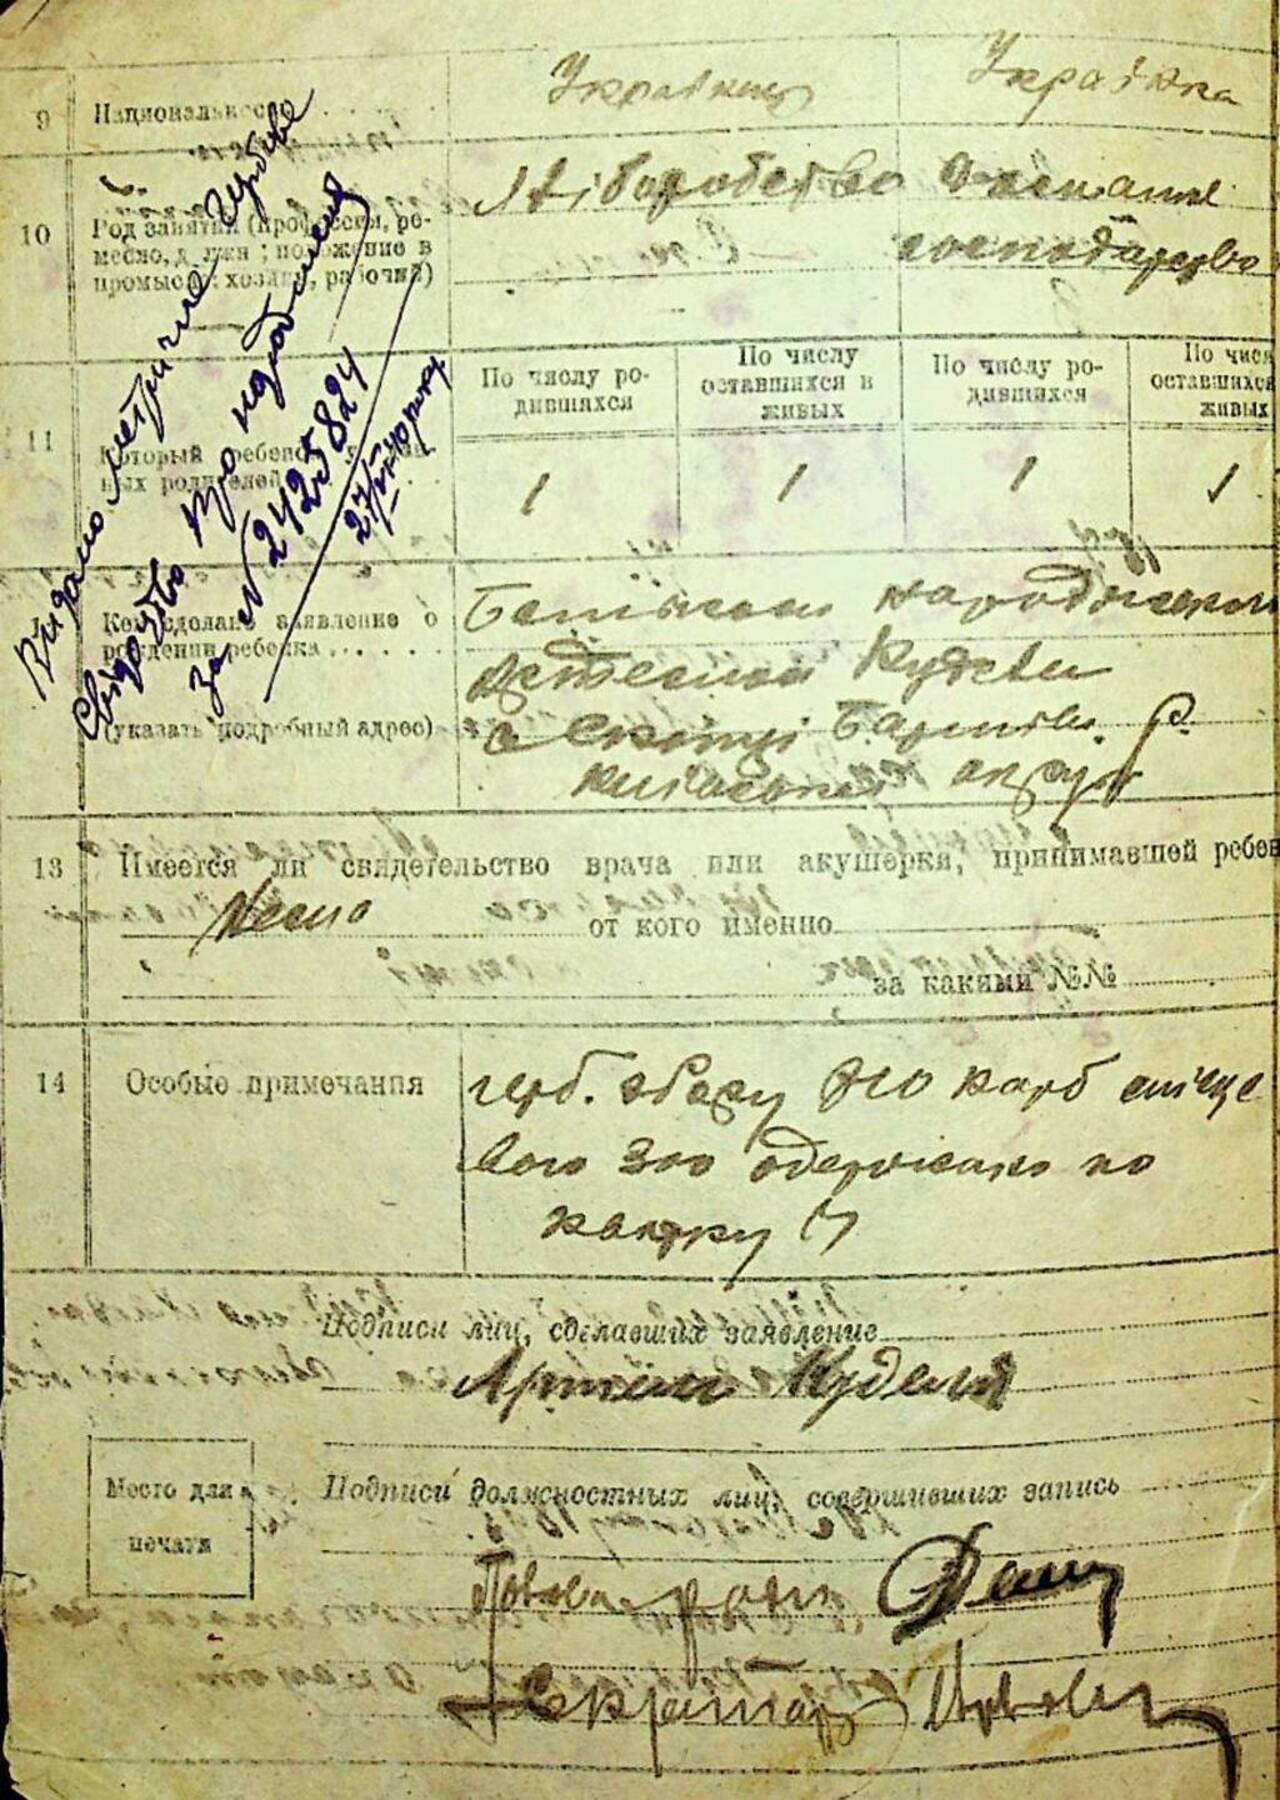 9 Национальность
Українець Українка
10 Род занятий (профессия, ре-
месло, должн; положение в
промысле: хозяин, рабочий)
Хліборобство Домашнє
господарство
11 Который ребенок
ных родителей
По числу ро-
дившихся
По числу
оставшихся в
живых
По числу ро-
дившихся
По числ
оставшихся
живых
1 1 1 1
Кем сделано заявление о
рождении ребенка . . . . .
(указать подробный адрес)
Батьком народженого
Артемом Куделею
с
Київської округ
Видано метричне
свідоцтво про народження
за № 2425824
13 Имеется ли свидетельство врача или акушерки, принимавшей ребен
Нема от кого именно
за какими №№
14 Особые примечания
герб. збору карб місце
вого 300 одержано по
7
Подписи лиц, сделавших заявление
Артём Куделя
Место для
печати
Подписи должностных лиц, совершивших запись
Голова
Секретарь